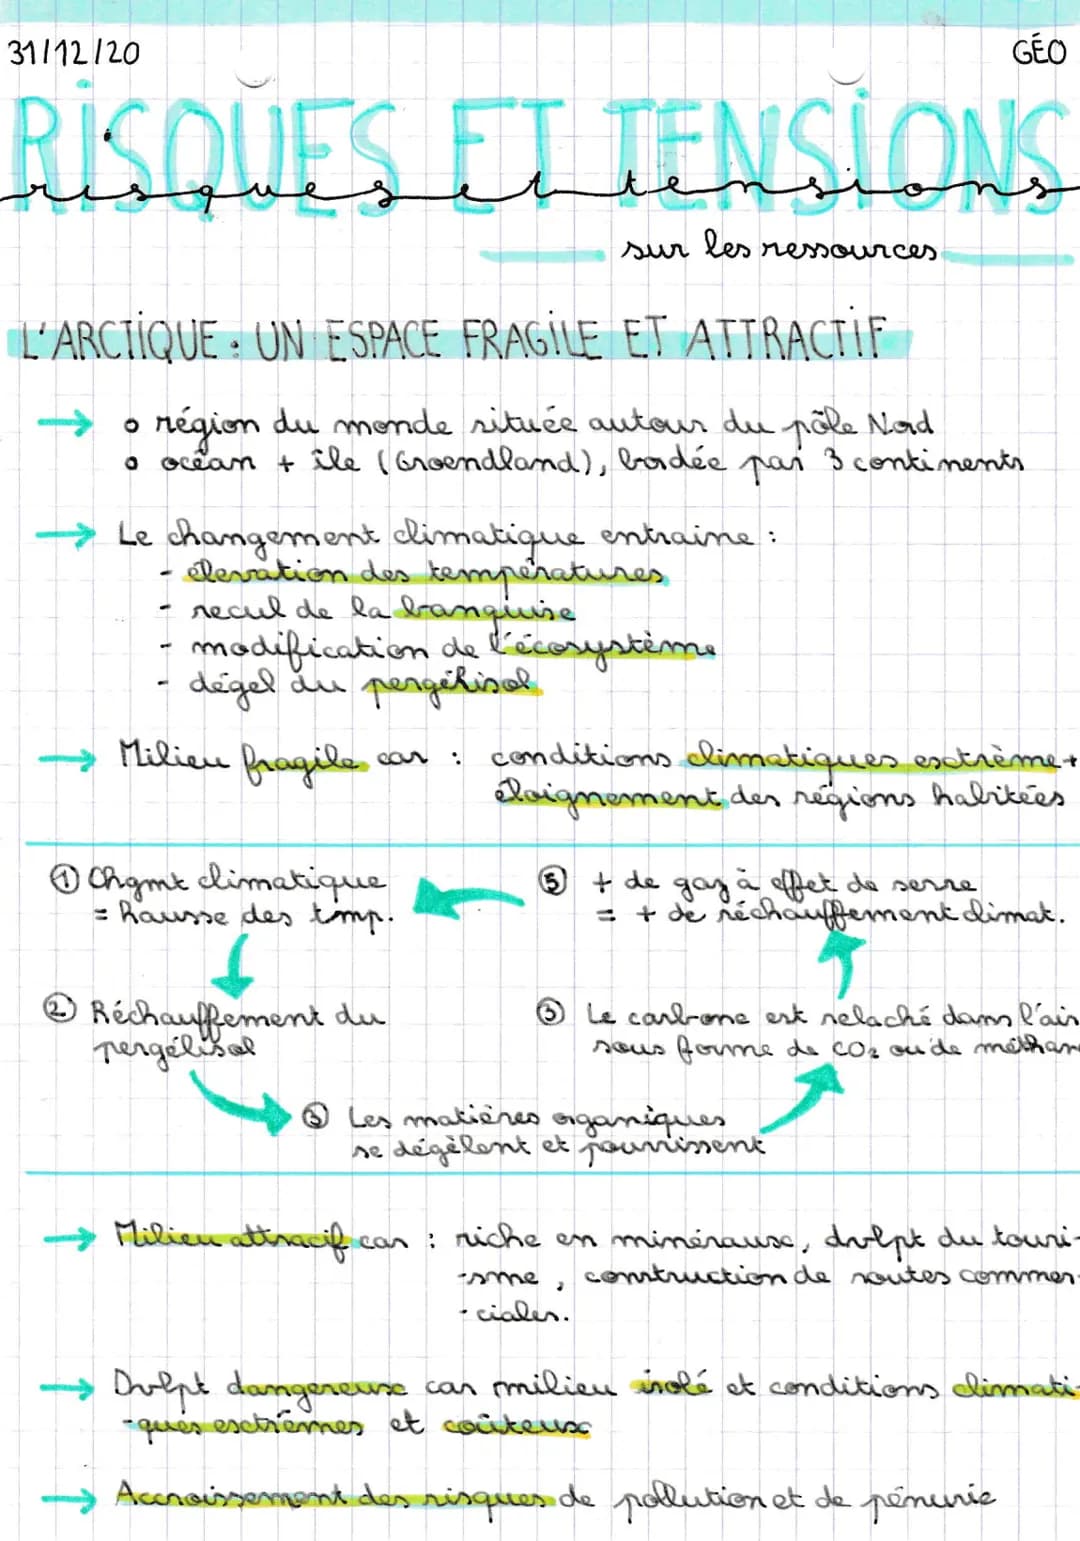 31/12/20
GÉO
RISQUES ET TENSIONS
risques et tensions
sur les ressources
L'ARCTIQUE : UN ESPACE FRAGILE ET ATTRACTIF
→ o région du monde située autour du pôle Nord
o océan + île (Groendland), bordée par 3 continents
→ Le changement climatique entraine :
- élevation des températures
- recul de la banquise
- modification de l'écosystème
- dégel du pergélisol
→ Milieu fragile car : conditions climatiques extrème +
éloignement des régions habitées
① Chgmt climatique
= hausse des tmp.
⑤ + de gaz à effet de serre
= + de réchauffement climat.
② Réchauffement du
pergélisol
③ Le carbone est relaché dans l'air
sous forme de CO₂ ou de méthan
③ Les matières organiques
se dégèlent et pourrissent
→ Milieu attracif car : riche en minéraux, dvlpt du touri-
-sme, construction de routes commer-
-ciales.
→ Dvlpt dangereux car milieu isolé et conditions climati-
-ques extrêmes et coûteux
→ Accroissement des risques de pollution et de pénurie